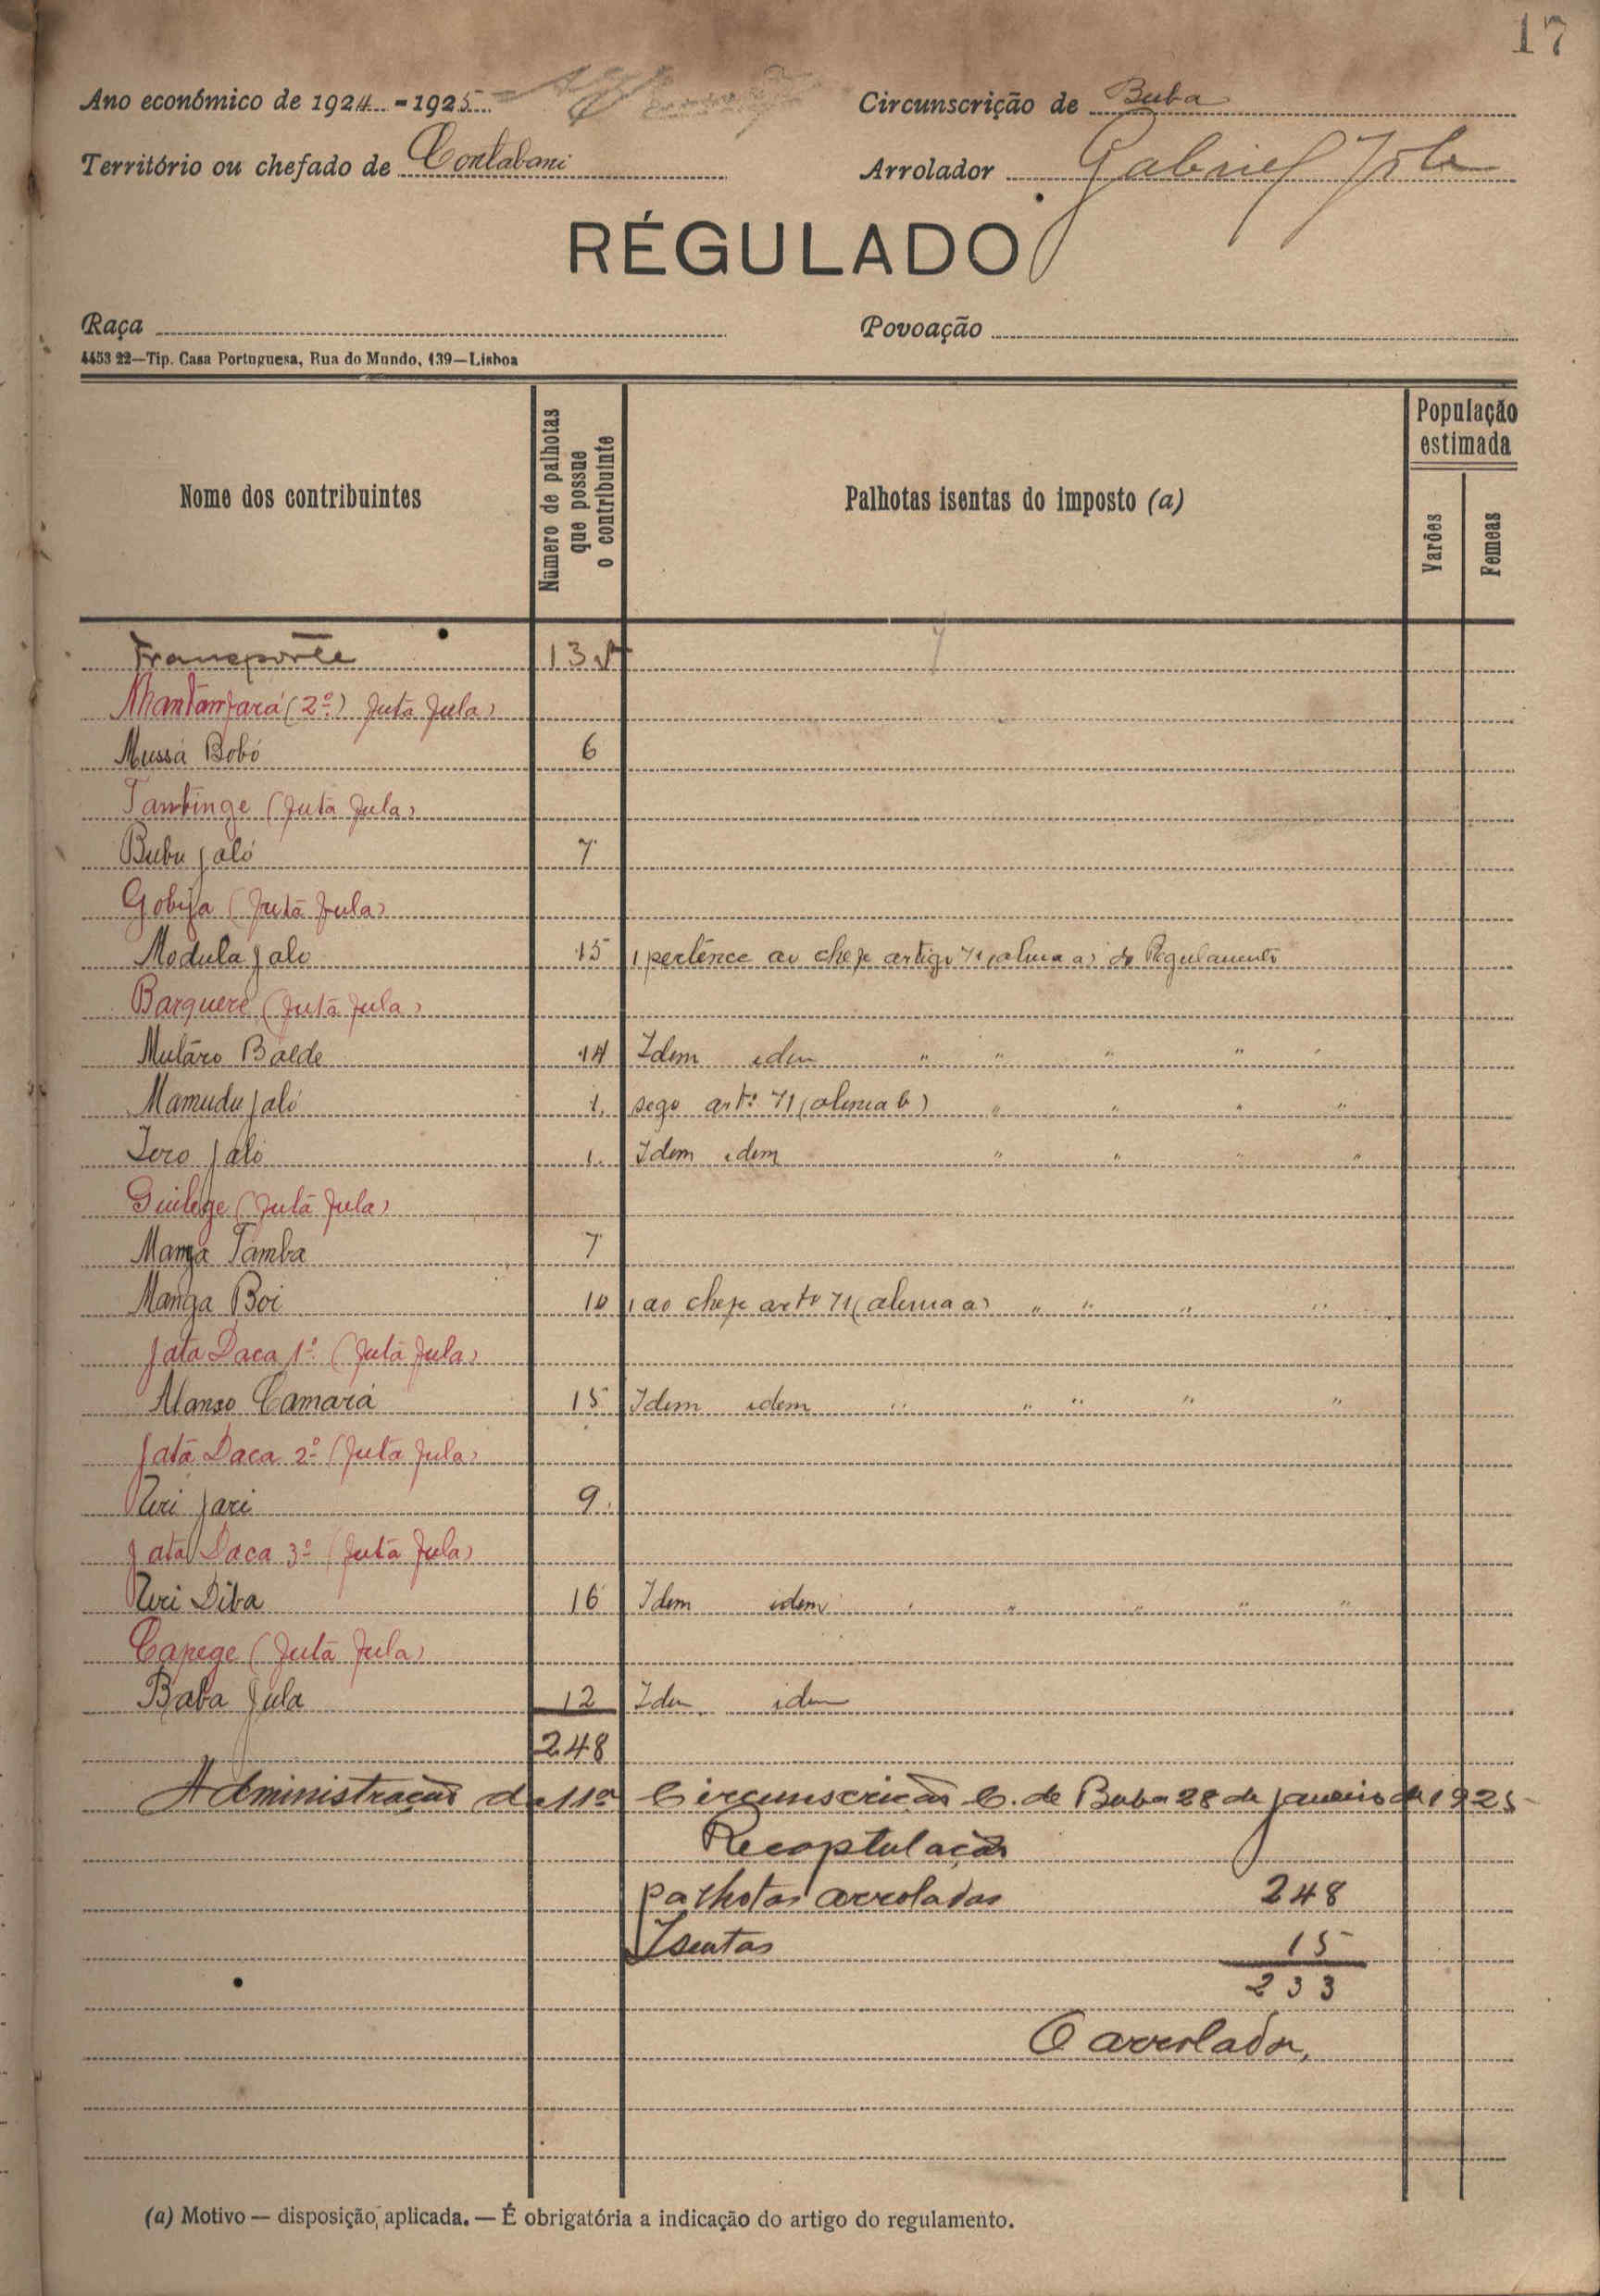 17
Ano económico de 1924 - 1925
Circunscrição de Buba
Território ou chefado de Contabani
Arrolador Gabriel
RÉGULADO
Raça
Povoação
4453 22—Tip. Casa Portuguesa, Rua do Mundo, 139—Lisboa
Nome dos contribuintes
Número de palhotas que possue o contribuinte
Palhotas isentas do imposto (a)
População estimada
Varões
Femeas
Transporte 13
(2º) Futa Fula)
Mussá Bobó 6
Tambinge (Futa Fula)
Bubu Jaló 7
Gobija (Futá Fula)
Modula Jalo 15 1 pertence ao chefe artigo 71 (alinea a) do Regulamento
Barquere (Futá Fula)
Mutáro Balde 14 Idem idem " " " " "
Mamudu Jaló 1. sego artº 71 (alinea b) " " " "
Iero Jaló 1. Idem idem " " " "
Guilege (Futá Fula)
Manga Tamba 7
Manga Boi 10 1 ao chefe artº 71 (alinea a) " " " "
Jata Daca 1º (Futá Fula)
Alanso Camará 15 Idem idem " " " " "
Jatá Daca 2º (Futa Fula)
Jari 9.
Jata Daca 3º (Futa Fula)
Diba 16 Idem idem " " " " "
Capege (Futá Fula)
Baba Jula 12 Idem idem
248
Administração da 11ª Circunscrição C. de Buba 28 de Janeiro de 1925
Recaptulação
palhotas arroladas 248
Isentas 15
233
O arrolador,
(a) Motivo — disposição aplicada. — É obrigatória a indicação do artigo do regulamento.